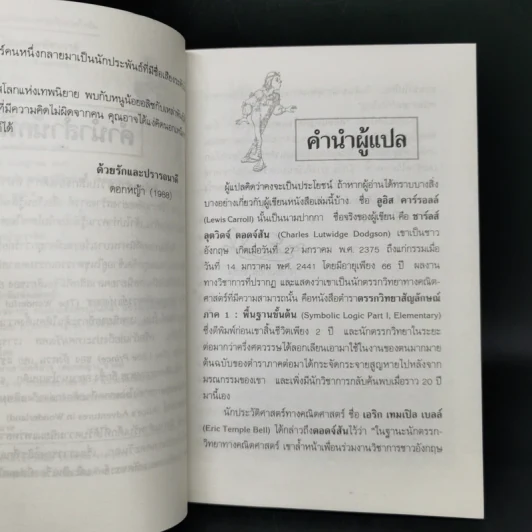 ร์คนหนึ่งกลายมาเป็นนักประพันธ์ที่มีชื่อเสียง
โลกแห่งเทพนิยาย พบกับหนูน้อยอลิซกับเหล่า
ที่มีความคิดไม่ผิดจากคน คุณอาจได้แง่คิด
ได้
ด้วยรักและปรารถนาดี
ดอกหญ้า (1988)
คำนำผู้แปล
ผู้แปลคิดว่าคงจะเป็นประโยชน์ ถ้าหากผู้อ่านได้ทราบบางสิ่ง
บางอย่างเกี่ยวกับผู้เขียนหนังสือเล่มนี้บ้าง ชื่อ ลูอิส คาร์รอลล์
(Lewis Carroll) นั้นเป็นนามปากกา ชื่อจริงของผู้เขียน คือ ชาร์ลส์
ลุตวิดจ์ ดอดจ์สัน (Charles Lutwidge Dodgson) เขาเป็นชาว
อังกฤษ เกิดเมื่อวันที่ 27 มกราคม พ.ศ. 2375 ถึงแก่กรรมเมื่อ
วันที่ 14 มกราคม พ.ศ. 2441 โดยมีอายุเพียง 66 ปี ผลงาน
ทางวิชาการที่ปรากฏ และแสดงว่าเขาเป็นนักตรรกวิทยาทางคณิต-
ศาสตร์ที่มีความสามารถนั้น คือหนังสือตำราตรรกวิทยาสัญลักษณ์
ภาค 1 : พื้นฐานขั้นต้น (Symbolic Logic Part I, Elementary)
ซึ่งตีพิมพ์ก่อนเขาสิ้นชีวิตเพียง 2 ปี และนักตรรกวิทยาในระยะ
ต่อมากว่าครึ่งศตวรรษได้ลอกเลียนเอามาใช้ในงานของตนมากมาย
ต้นฉบับของตำราภาคต่อมาได้กระจัดกระจายสูญหายไปหลังจาก
มรณกรรมของเขา และเพิ่งมีนักวิชาการกลับค้นพบเมื่อราว 20 ปี
มานี้เอง
นักประวัติศาสตร์ทางคณิตศาสตร์ ชื่อ เอริก เทมเปิล เบลล์
(Eric Temple Bell) ได้กล่าวถึงดอดจ์สันไว้ว่า "ในฐานะนักตรรก-
วิทยาทางคณิตศาสตร์ เขาล้ำหน้าเพื่อนร่วมงานวิชาการชาวอังกฤษ